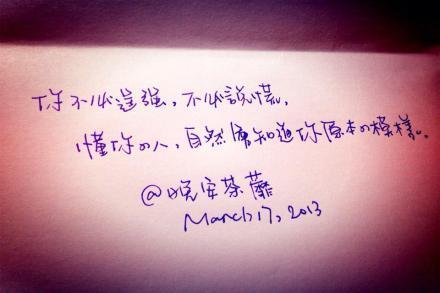 你不必逞强，不必說慌，
懂你的人，自然會知道你原本的模樣。
@晚安荼蘼
March 17, 2013